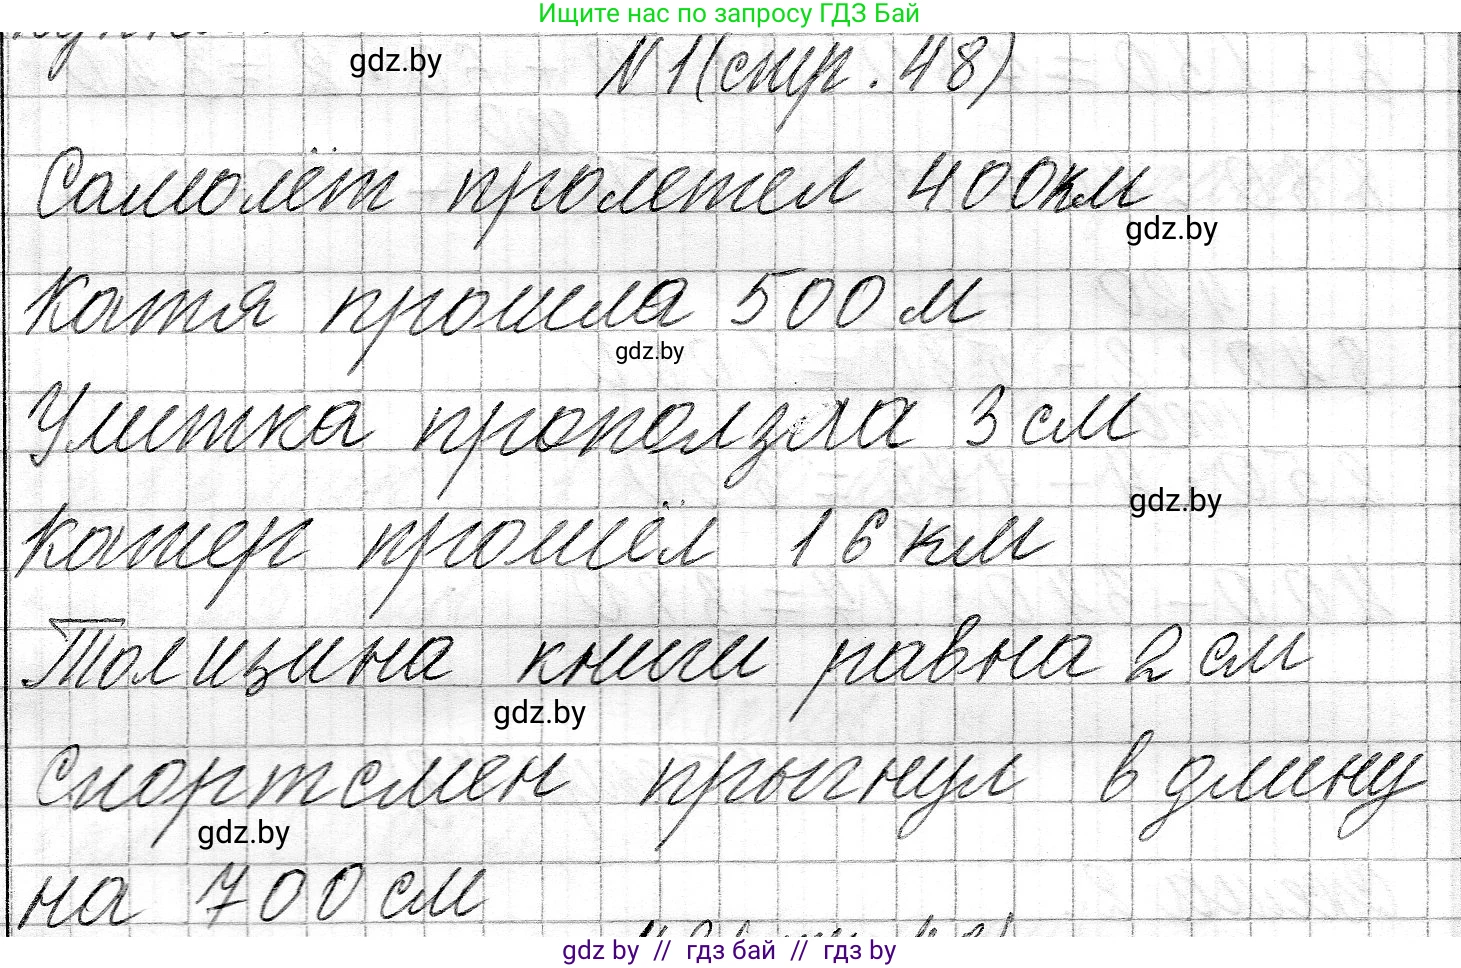 Ищите нас по запросу ГДЗ Бай
gdz.by
N1(стр. 48)
Самолёт пролетел 400км
gdz.by
Катя прошла 500 м
gdz.by
Улитка проползла 3 см
gdz.by
Катер прошёл 16 км
Толщина книги равна 2 см
gdz.by
Спортсмен прыгнул в длину
gdz.by
на 700 см
gdz by // гдз бай // гдз by